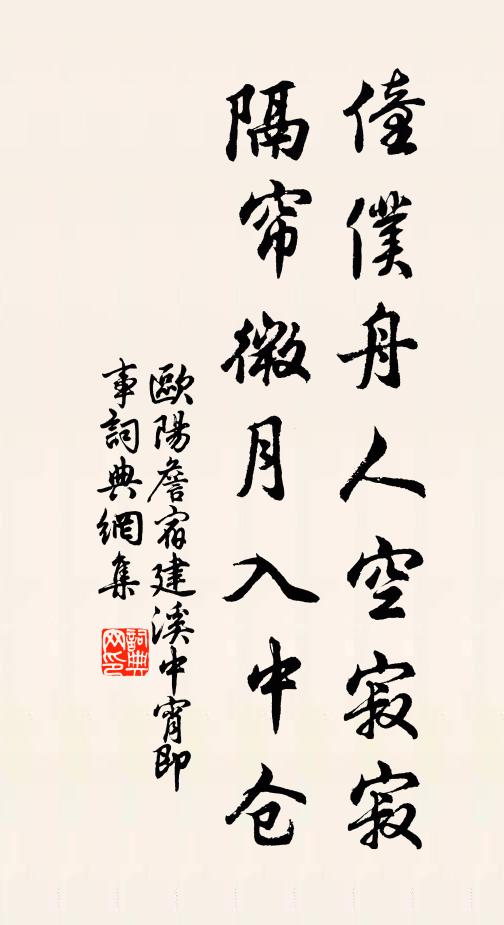 僮僕舟人空寂寂
隔帘微月入中仓
歐陽詹宿建溪中宵即
事詞典網集
詞典
网印